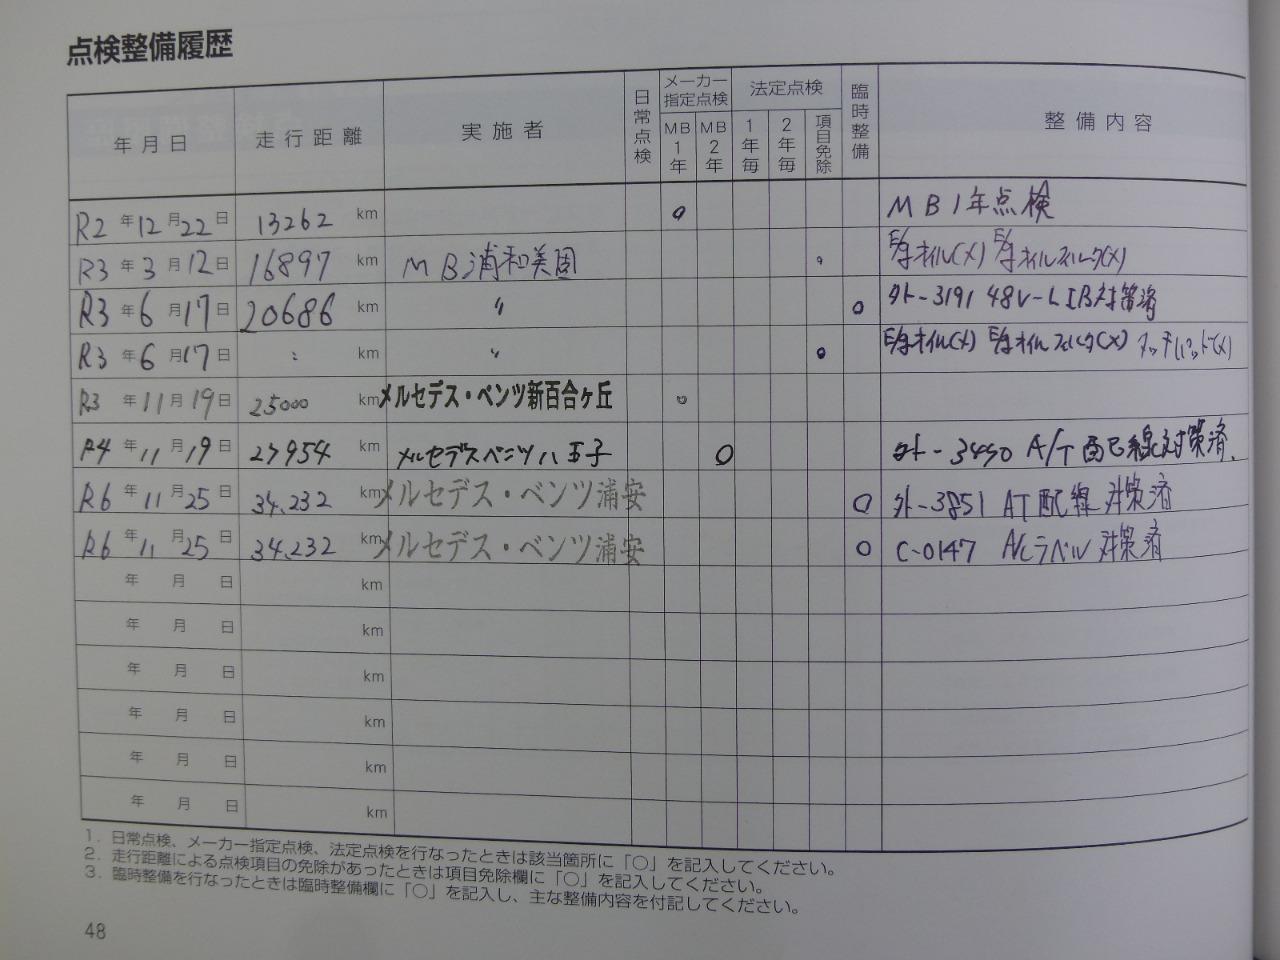 点検整備履歴
年月日 走行距離 実施者 日常点検 メーカー指定点検 MB1年 MB2年 法定点検 1年毎 2年毎 項目免除 臨時整備 整備内容
R2年12月22日 13262 km ○ MB1年点検
R3年3月12日 16897 km MB浦和美園 ○ E/gオイル(×) E/gオイルフィルタ(×)
R3年6月17日 20686 km 〃 ○ 外-3191 48V-LIB対策済
R3年6月17日 〃 km 〃 ○ E/gオイル(×) E/gオイルフィルタ(×)
R3年11月19日 25000 km メルセデス・ベンツ新百合ヶ丘 ○
R4年11月19日 27954 km メルセデスベンツ八王子 ○ 外-3490 A/T配線対策済.
R6年11月25日 34.232 km メルセデス・ベンツ浦安 ○ 外-3851 AT配線対策済
R6年11月25日 34.232 km メルセデス・ベンツ浦安 ○ C-0147 A/Cラベル対策済
年 月 日 km
年 月 日 km
年 月 日 km
年 月 日 km
年 月 日 km
年 月 日 km
1. 日常点検、メーカー指定点検、法定点検を行なったときは該当箇所に「○」を記入してください。
2. 走行距離による点検項目の免除があったときは項目免除欄に「○」を記入してください。
3. 臨時整備を行なったときは臨時整備欄に「○」を記入し、主な整備内容を付記してください。
48